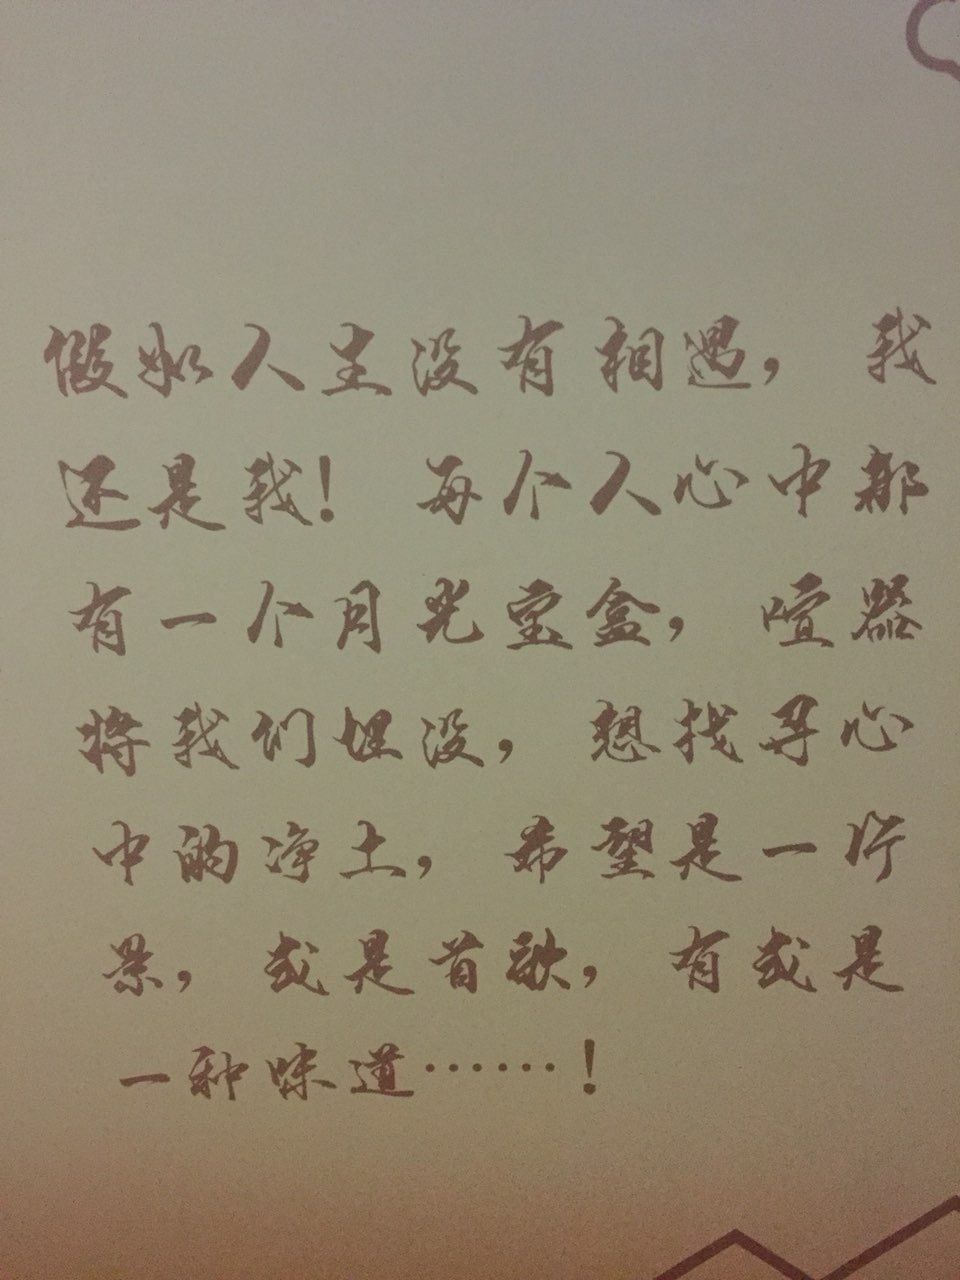 假如人生没有相遇，我
还是我！每个人心中都
有一个月光宝盒，喧嚣
将我们埋没，想找寻心
中的净土，希望是一行
景，或是首歌，有或是
一种味道……！